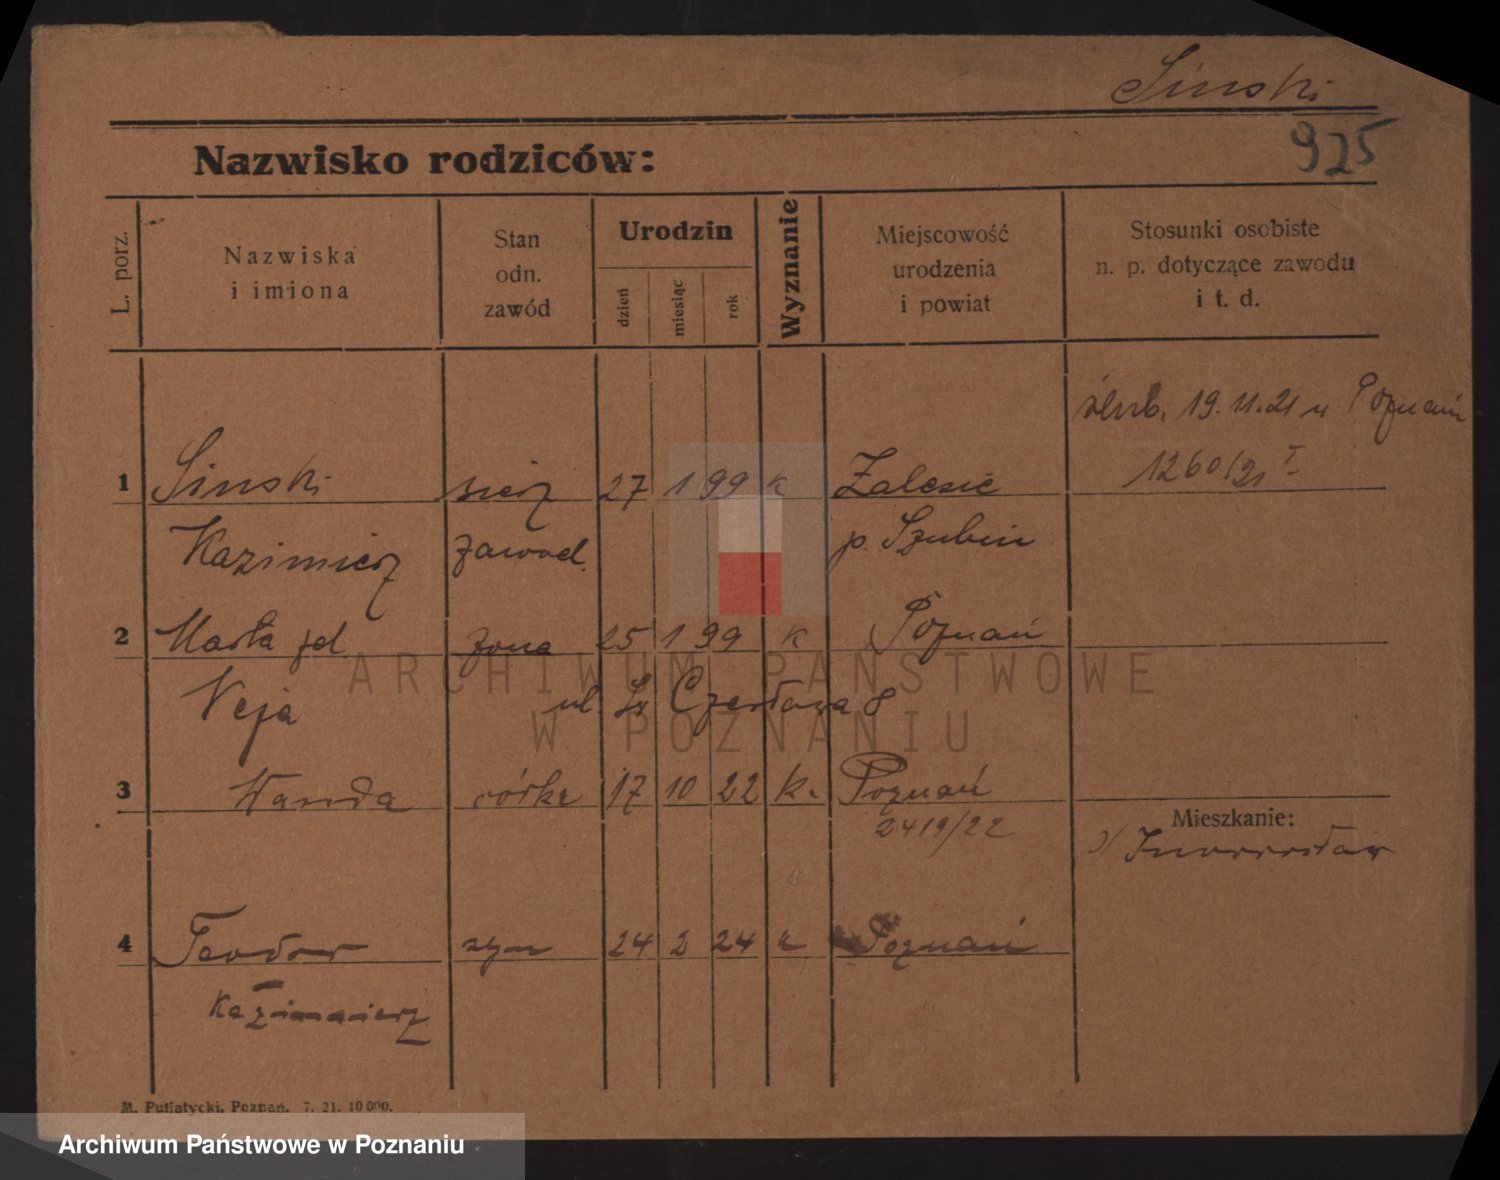 Sinski
925
Nazwisko rodziców:
L. porz.
Nazwiska
i imiona
Stan
odn.
zawód
Urodzin
dzień
miesiąc
rok
Wyznanie
Miejscowość
urodzenia
i powiat
Stosunki osobiste
n. p. dotyczące zawodu
i t. d.
ślub. 19. 11. 21 w Poznaniu
1260/21 I
1 Sinski sierż 27 1 99 k Zalesie
Kazimierz zawod. p. Szubin
2 Marta żona 25 1 99 k Poznań
Veja ul. Św Czesława 8
3 Wanda córka 17 10 22 k. Poznań
2419/22
Mieszkanie:
Inowrocław
4 Teodor syn 24 2 24 k Poznań
Kazimierz
M. Putiatycki, Poznań. 7. 21. 10 000.
ARCHIWUM PAŃSTWOWE
W POZNANIU
Archiwum Państwowe w Poznaniu